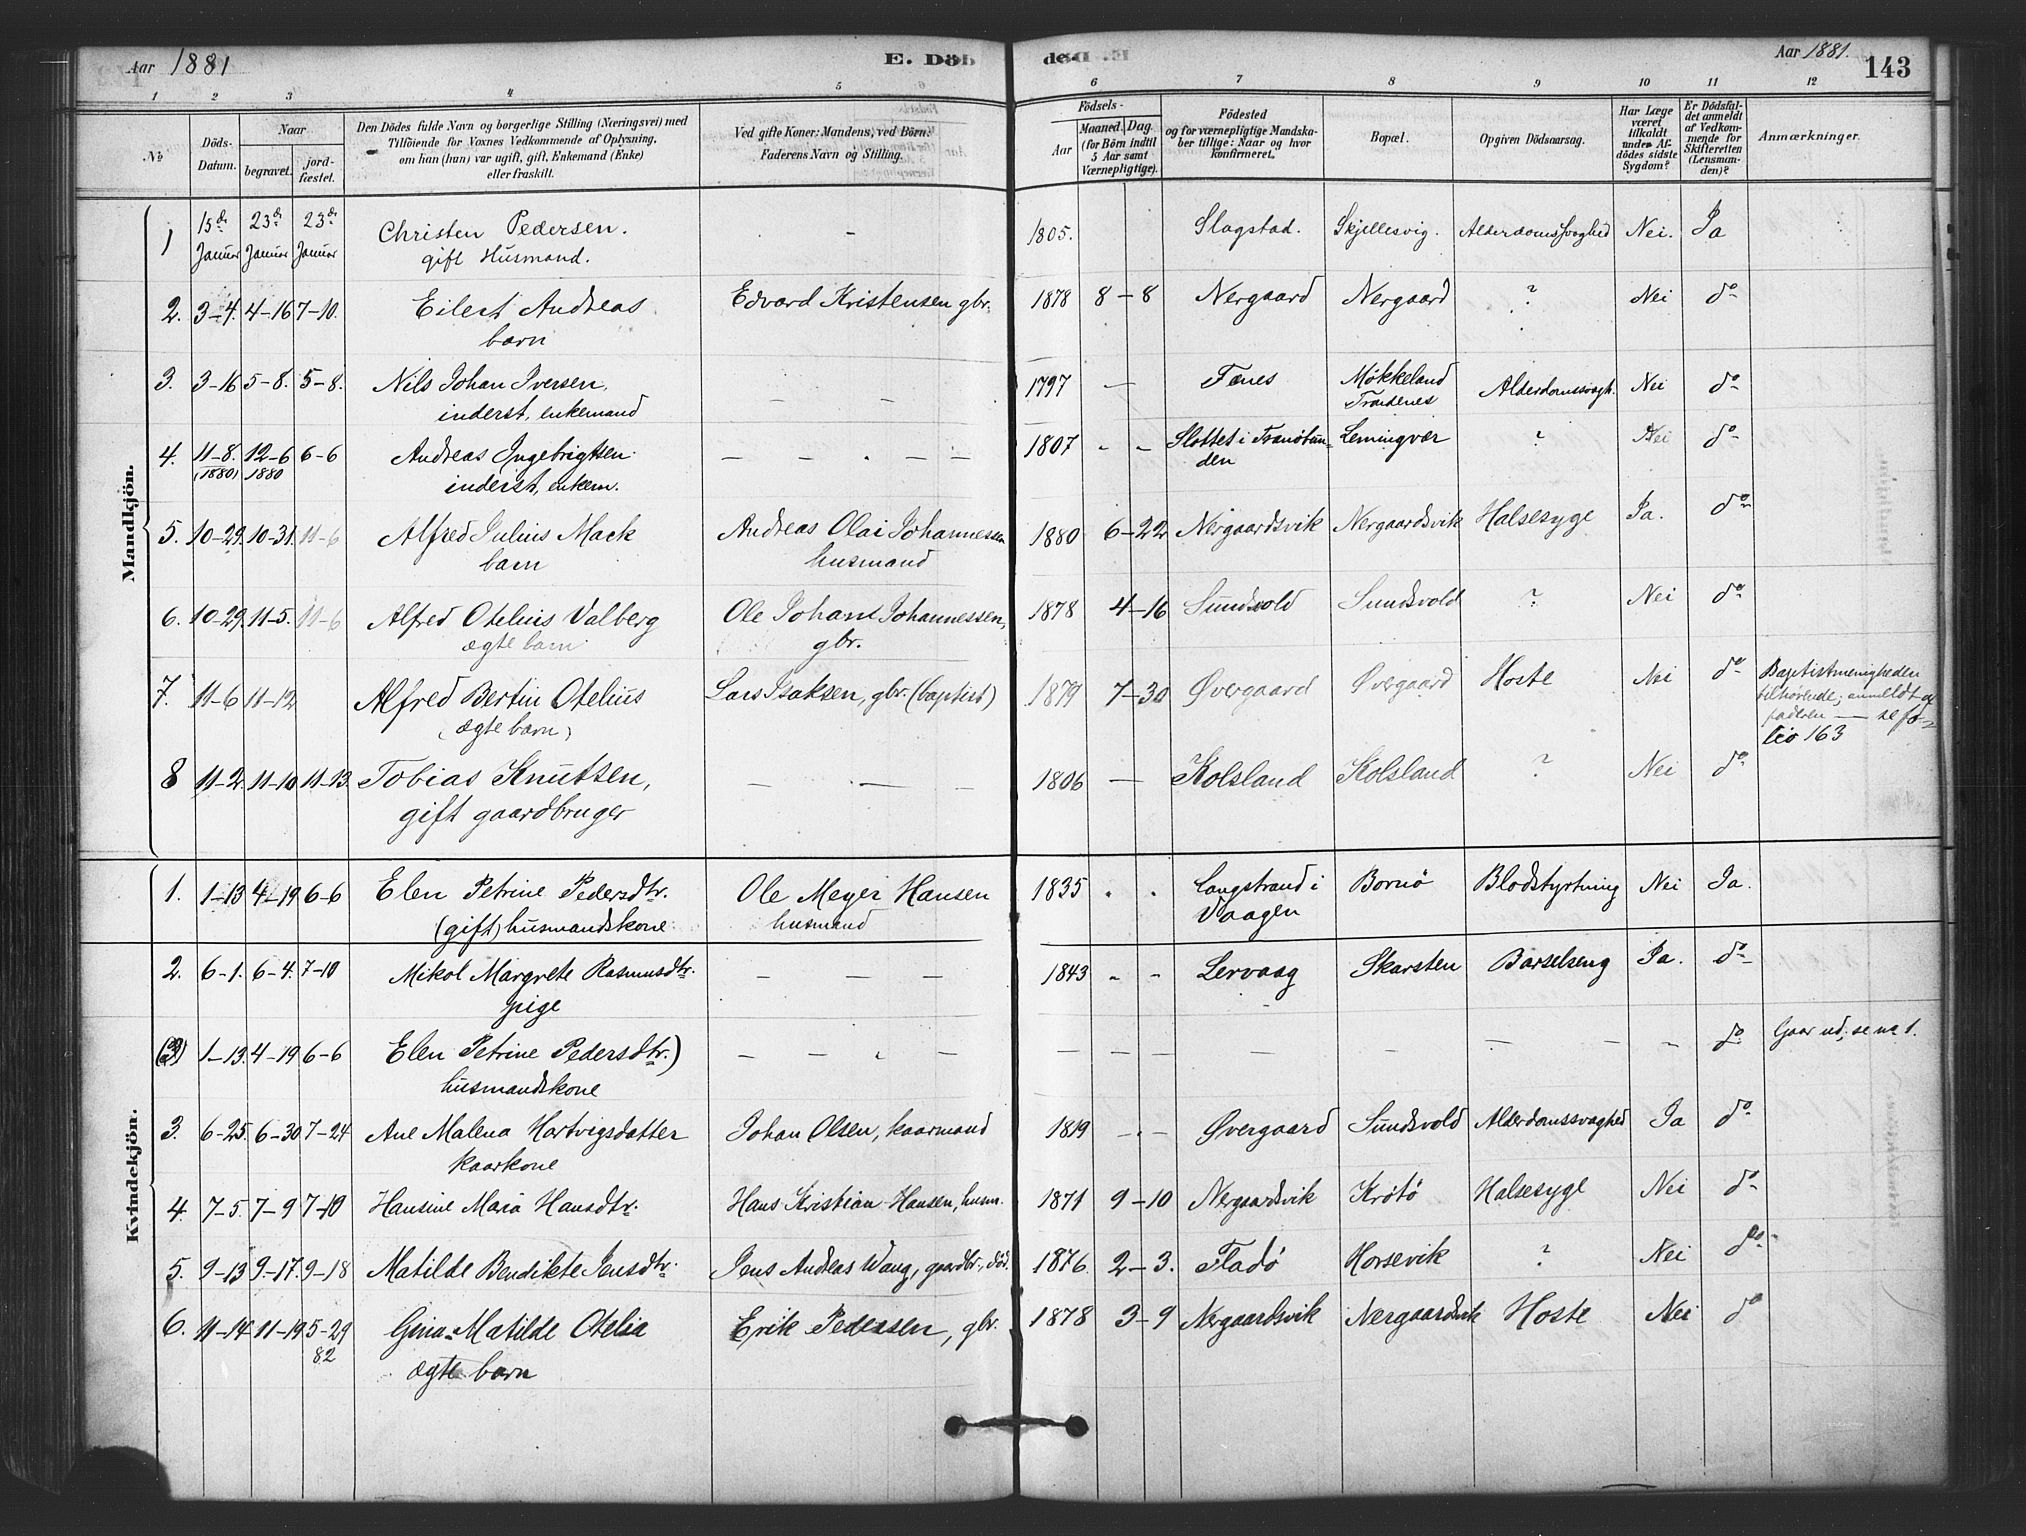 Aar 1881 E. Döb död Aar 1881. 143
1 2 3 4 5 6 7 8 9 10 11 12
No
Döds-Datum.
Naar
begravet.
jord-fæstet.
Den Dödes fulde Navn og borgerlige Stilling (Næringsvei) med
Tilföiende for Voxnes Vedkommende af Oplysning,
om han (hun) var ugift, gift, Enkemand (Enke)
eller fraskilt.
Ved gifte Koner: Mandens, ved Börn:
Faderens Navn og Stilling.
Födsels-
Aar
Maaned. Dag.
(for Börn indtil
5 Aar samt
Værnepligtige).
Födested
og for værnepligtige Mandska-
ber tillige: Naar og hvor
konfirmeret.
Bopæl.
Opgiven Dödsaarsag.
Har Læge
været
tilkaldt
under Af-
dödes sidste
Sygdom?
Er Dödsfal-
det anmeldt
af Vedkom-
mende for
Skifteretten
(Lensman-
den)?
Anmærkninger.
Mandkjön.
1 15de Januar 23de Januar 23de Januar Christen Pedersen. – 1805. Slagstad. Skjellesvig. Alderdomssvaghed Nei. Ja
gift Husmand.
2. 3–4. 4–16 7–10. Eilert Andreas Edvard Kristensen gbr. 1878 8–8 Nergaard Nergaard ? Nei do
barn
3. 3–16 5–8. 5–8. Nils Johan Iversen, – – 1797 — Fænes Møkkeland Nei do
inderst, enkemand Trondenes Alderdomssvagh.
4. 11–8. 12–6 6–6 Andreas Ingebrigtsen – – – – 1807 - - Slottet i Tranøbun- Lemingvær ? Nei do
(1880) 1880 inderst, enkem. den
5. 10–29. 10–31. 11–6 Alfred Julius Mack Andreas Olai Johannessen 1880 6–22 Nergaardsvik Nergaardsvik Halsesyge Ja. do
barn husmand
6. 10–29. 11–5. 11–6 Alfred Otelius Valberg Ole Johan Johannessen, 1878 4–16 Sundsvold Sundsvold ? Nei do
ægte barn gbr.
7. 11–6 11–12 Alfred Bertin Otelius Lars Isaksen, gbr. (baptist) 1879 7–30 Øvergaard Øvergaard Hoste Nei do Baptistmenigheden
(ægte barn) tilhørende; anmeldt af
faderen — se fo-
lio 163
8 11–2. 11–10 11–13. Tobias Knutsen, – – – 1806 — Kolsland Kolsland ? Nei do
gift gaardbruger
Kvindekjön.
1. 1–13 4–19 6–6 Elen Petrine Pedersdtr. Ole Meyer Hansen 1835 Langstrand i Bornø Blodstyrtning Nei Ja.
(gift) husmandskone husmand Vaagen
2. 6–1. 6–4. 7–10 Mikol Margrete Rasmusdtr. – – – 1843 - - Lervaag Skarsten Barselseng Ja. do
pige
(3) 1–13. 4–19 6–6 Elen Petrine Pedersdtr.) – – – – – – – – – – – – do Gaar ud, se no 1.
husmandskone
3. 6–25. 6–30 7–24 Ane Malena Hartvigsdatter Johan Olsen, kaarmand 1819 – – Øvergaard Sundsvold Alderdomssvaghed Ja do
kaarkone
4. 7–5. 7–9 7–10 Hansine Maria Hansdtr. Hans Kristian Hansen, husm. 1871 9–10 Nergaardsvik Krøtø Halsesyge Nei do
5. 9–13 9–17. 9–18 Matilde Bendikte Jensdtr. Jens Andreas Wang, gaardbr., død. 1876. 2–3. Fladø Horsevik ? Nei do
6. 11–14 11–19 5–29 Gina Matilde Otelia Erik Pedersen, gbr. 1878 3–9 Nergaardsvik Nergaardsvik Hoste Nei do
82
ægte barn